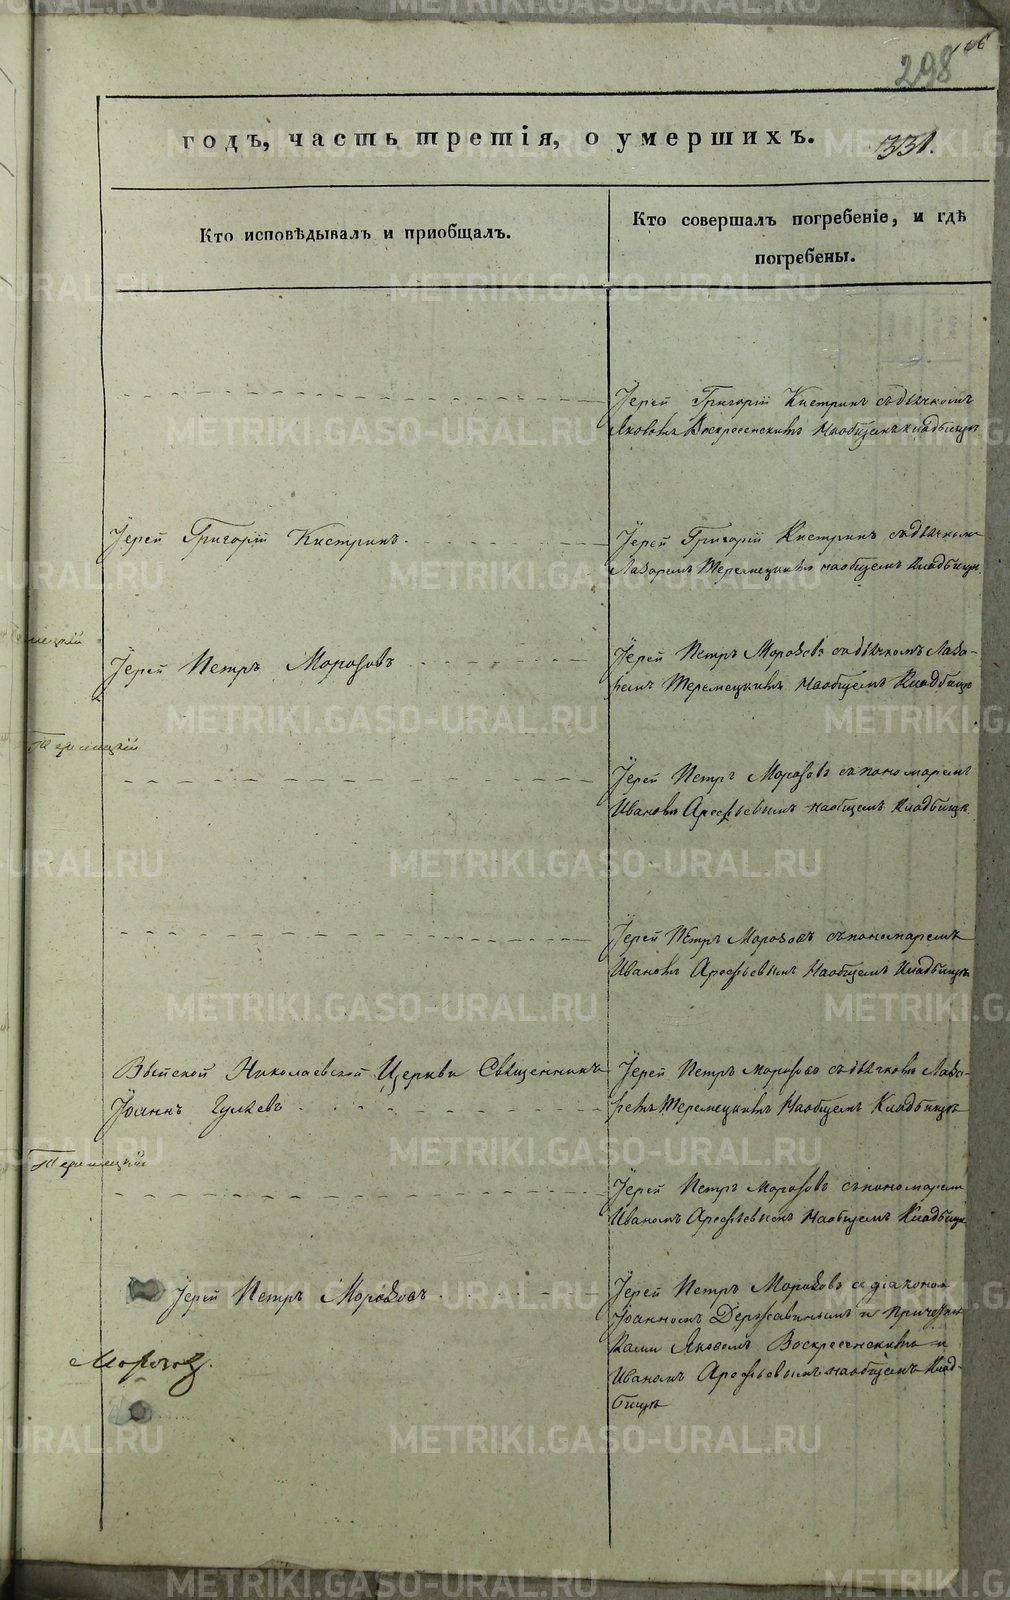 298
годъ, часть третія, о умершихъ.
331.
Кто исповѣдывалъ и приобщалъ.
Кто совершалъ погребеніе, и гдѣ
погребены.
Іерей Григорій Кистринъ съ дьячкомъ
Яковомъ Воскресенскимъ на общемъ кладбищѣ
Іерей Григорій Кистринъ.
Іерей Григорій Кистринъ съ дьячкомъ
Лазаремъ Теремецкимъ на общемъ кладбищѣ
Іерей Петръ Морозовъ
Іерей Петръ Морозовъ съ дьячкомъ Лаза-
ремъ Теремецкимъ на общемъ кладбищѣ
Іерей Петръ Морозовъ съ пономаремъ
Иваномъ Арефьевымъ на общемъ кладбищѣ
Іерей Петръ Морозовъ съ пономаремъ
Иваномъ Арефьевымъ на общемъ кладбищѣ
Выйской Николаевской Церкви Священникъ
Іоаннъ
Іерей Петръ Морозовъ съ дьячкомъ Лаза-
ремъ Теремецкимъ на общемъ кладбищѣ
Іерей Петръ Морозовъ съ пономаремъ
Иваномъ Арефьевымъ на общемъ кладбищѣ
Іерей Петръ Морозовъ.
Іерей Петръ Морозовъ съ діакономъ
Іоанномъ Державинымъ и причетни-
ками Яковомъ Воскресенскимъ и
Иваномъ Арефьевымъ на общемъ клад-
бищѣ
Морозов.
METRIKI.GASO-URAL.RU